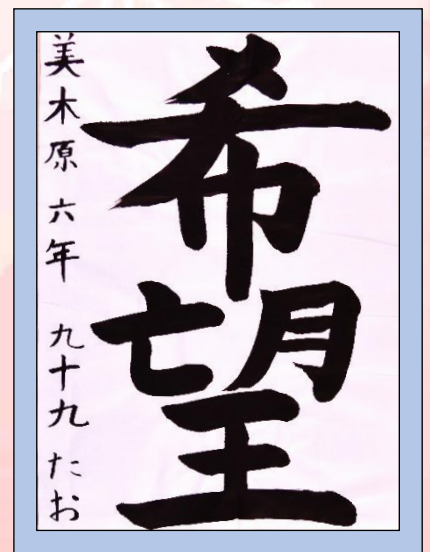 希望
美木原 六年 九十九 たお